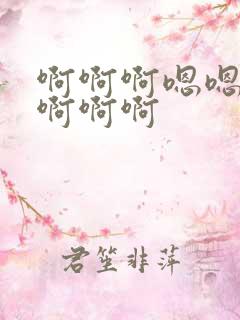 啊啊啊嗯嗯
啊啊啊
君笙非萍